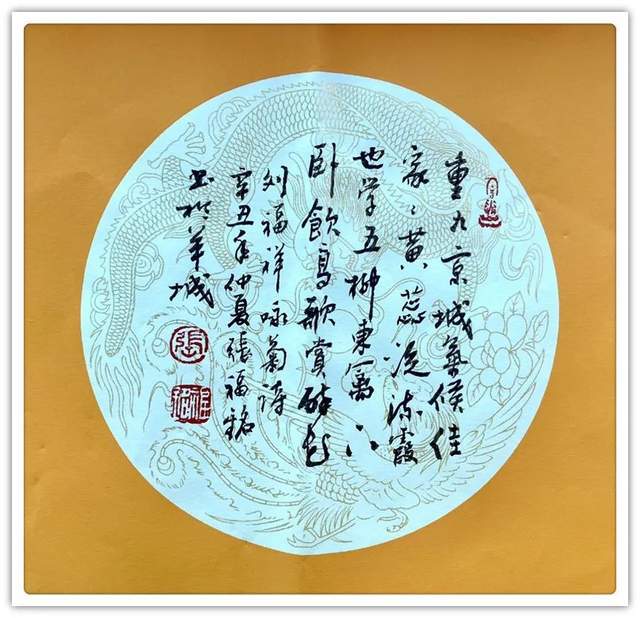 重九京城氣候佳
家々黄蕊泛流霞
也学五柳東篱下
卧飲高歌賞醉花
刘福祥咏菊诗
辛丑年仲夏張福銘
书於羊城
張